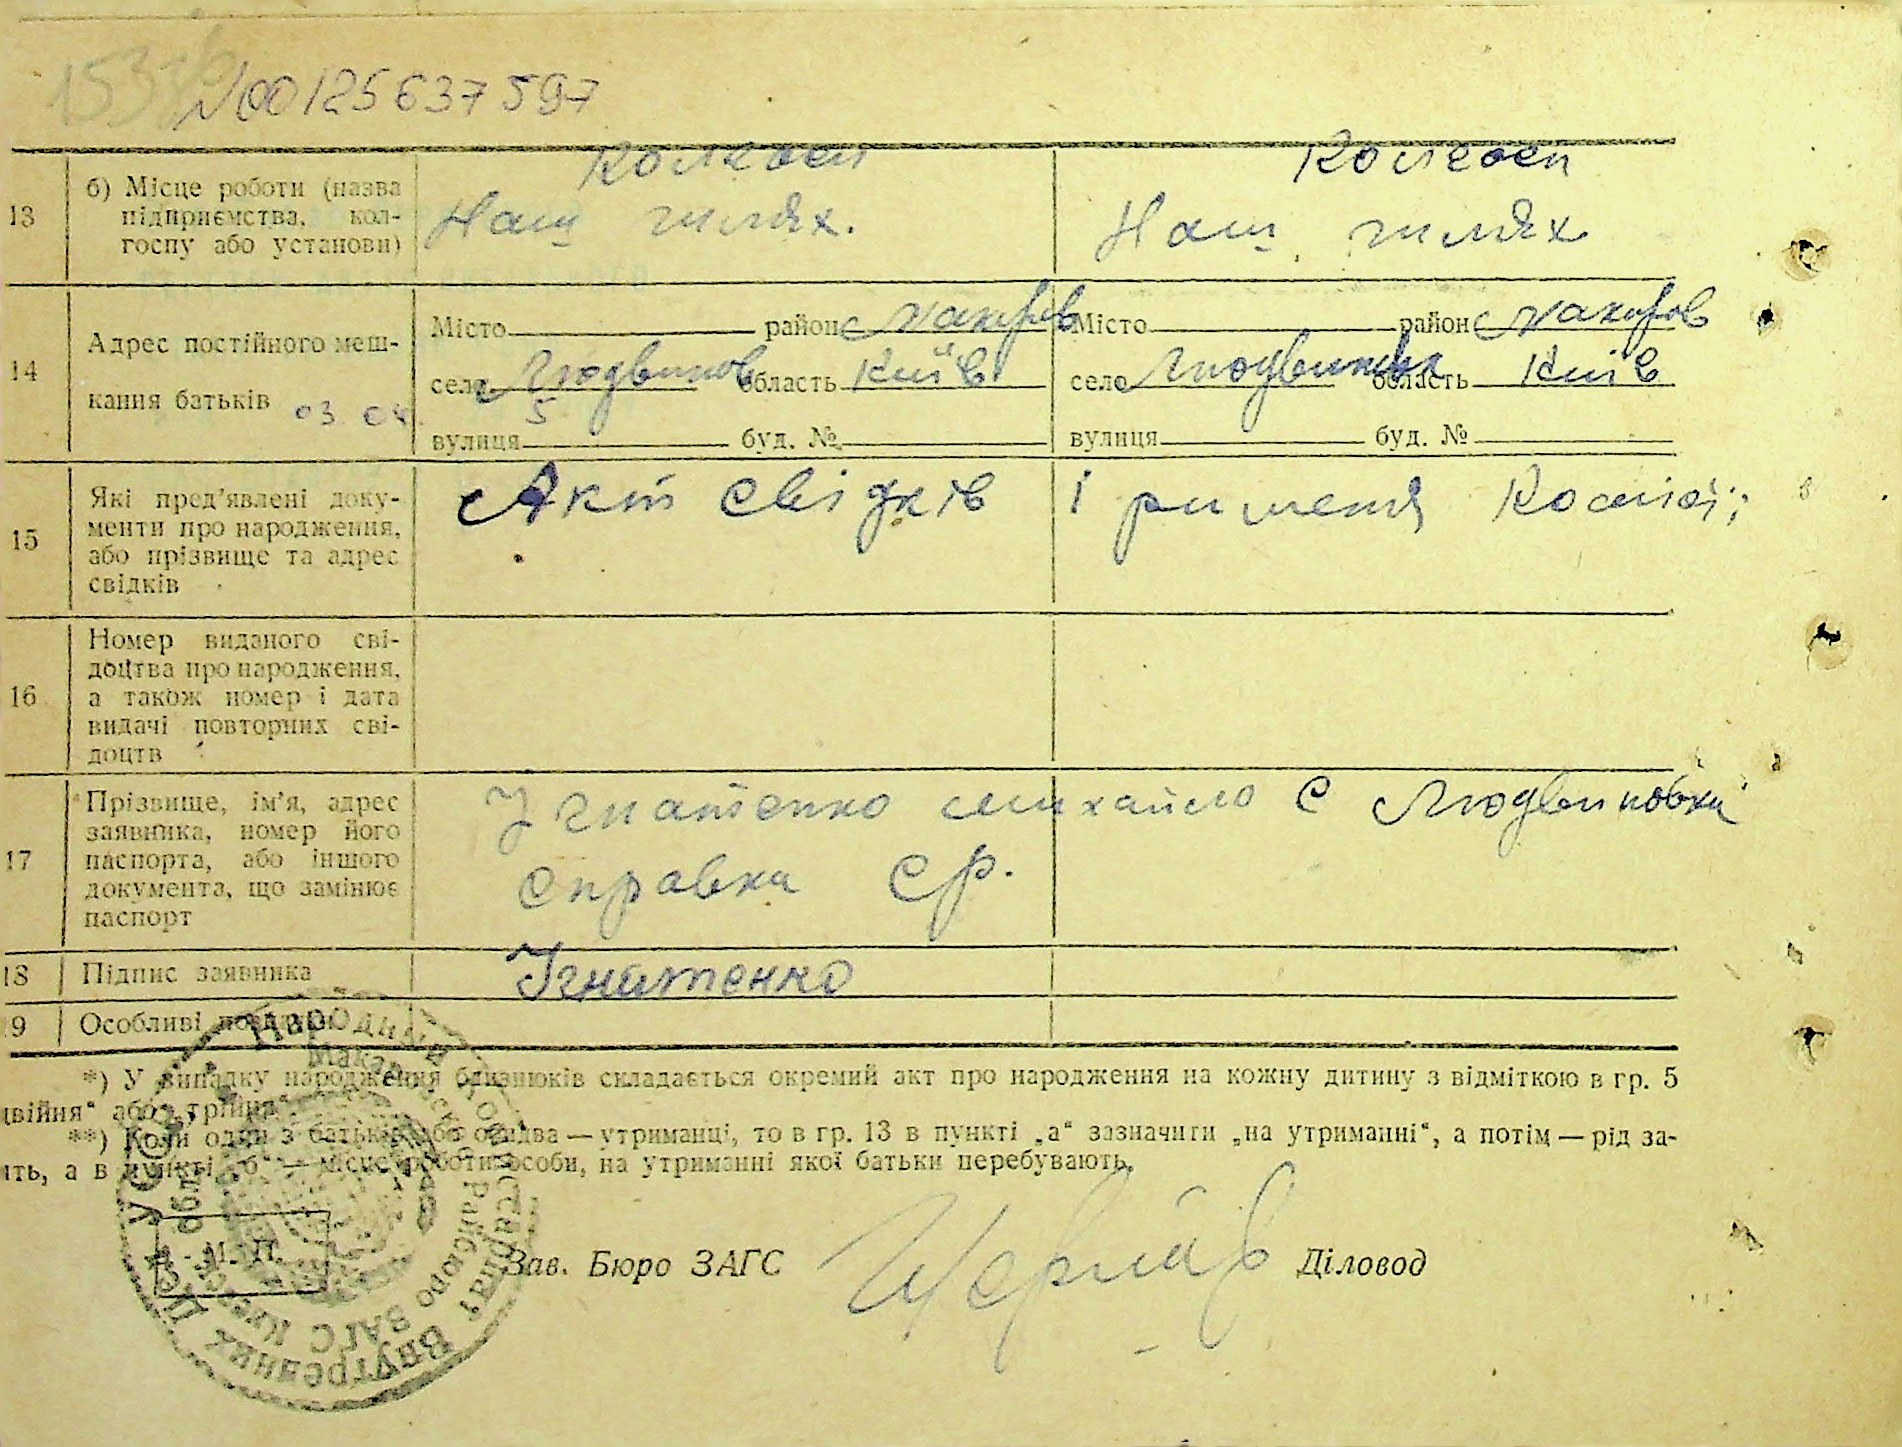 №00125637597
13
б) Місце роботи (назва
підприємства, кол-
госпу або установи)
Колгосп
Наш шлях.
Колгосп
Наш шлях
14
Адрес постійного меш-
кання батьків 03 04 5
Місто район Макаров
село Людвинов область Київ
вулиця буд. №
Місто район Макаров
село область Київ
вулиця буд. №
15
Які пред'явлені доку-
менти про народження,
або прізвище та адрес
свідків
Акт свідків і рішення
16
Номер виданого сві-
доцтва про народження,
а також номер і дата
видачі повторних сві-
доцтв
17
Прізвище, ім'я, адрес
заявника, номер його
паспорта, або іншого
документа, що замінює
паспорт
Ігнатенко Михайло с Людвиновка
Справка с/р.
18
Підпис заявника
Ігнатенко
19
Особливі
*) У випадку народження близнюків складається окремий акт про народження на кожну дитину з відміткою в гр. 5
двійня" або „трійня"
**) Коли один з батьків або обидва — утриманці, то в гр. 13 в пункті „а" зазначити „на утриманні", а потім — рід за-
ять, а в пункті „б" — місце роботи особи, на утриманні якої батьки перебувають.
М. П.
Зав. Бюро ЗАГС
Діловод